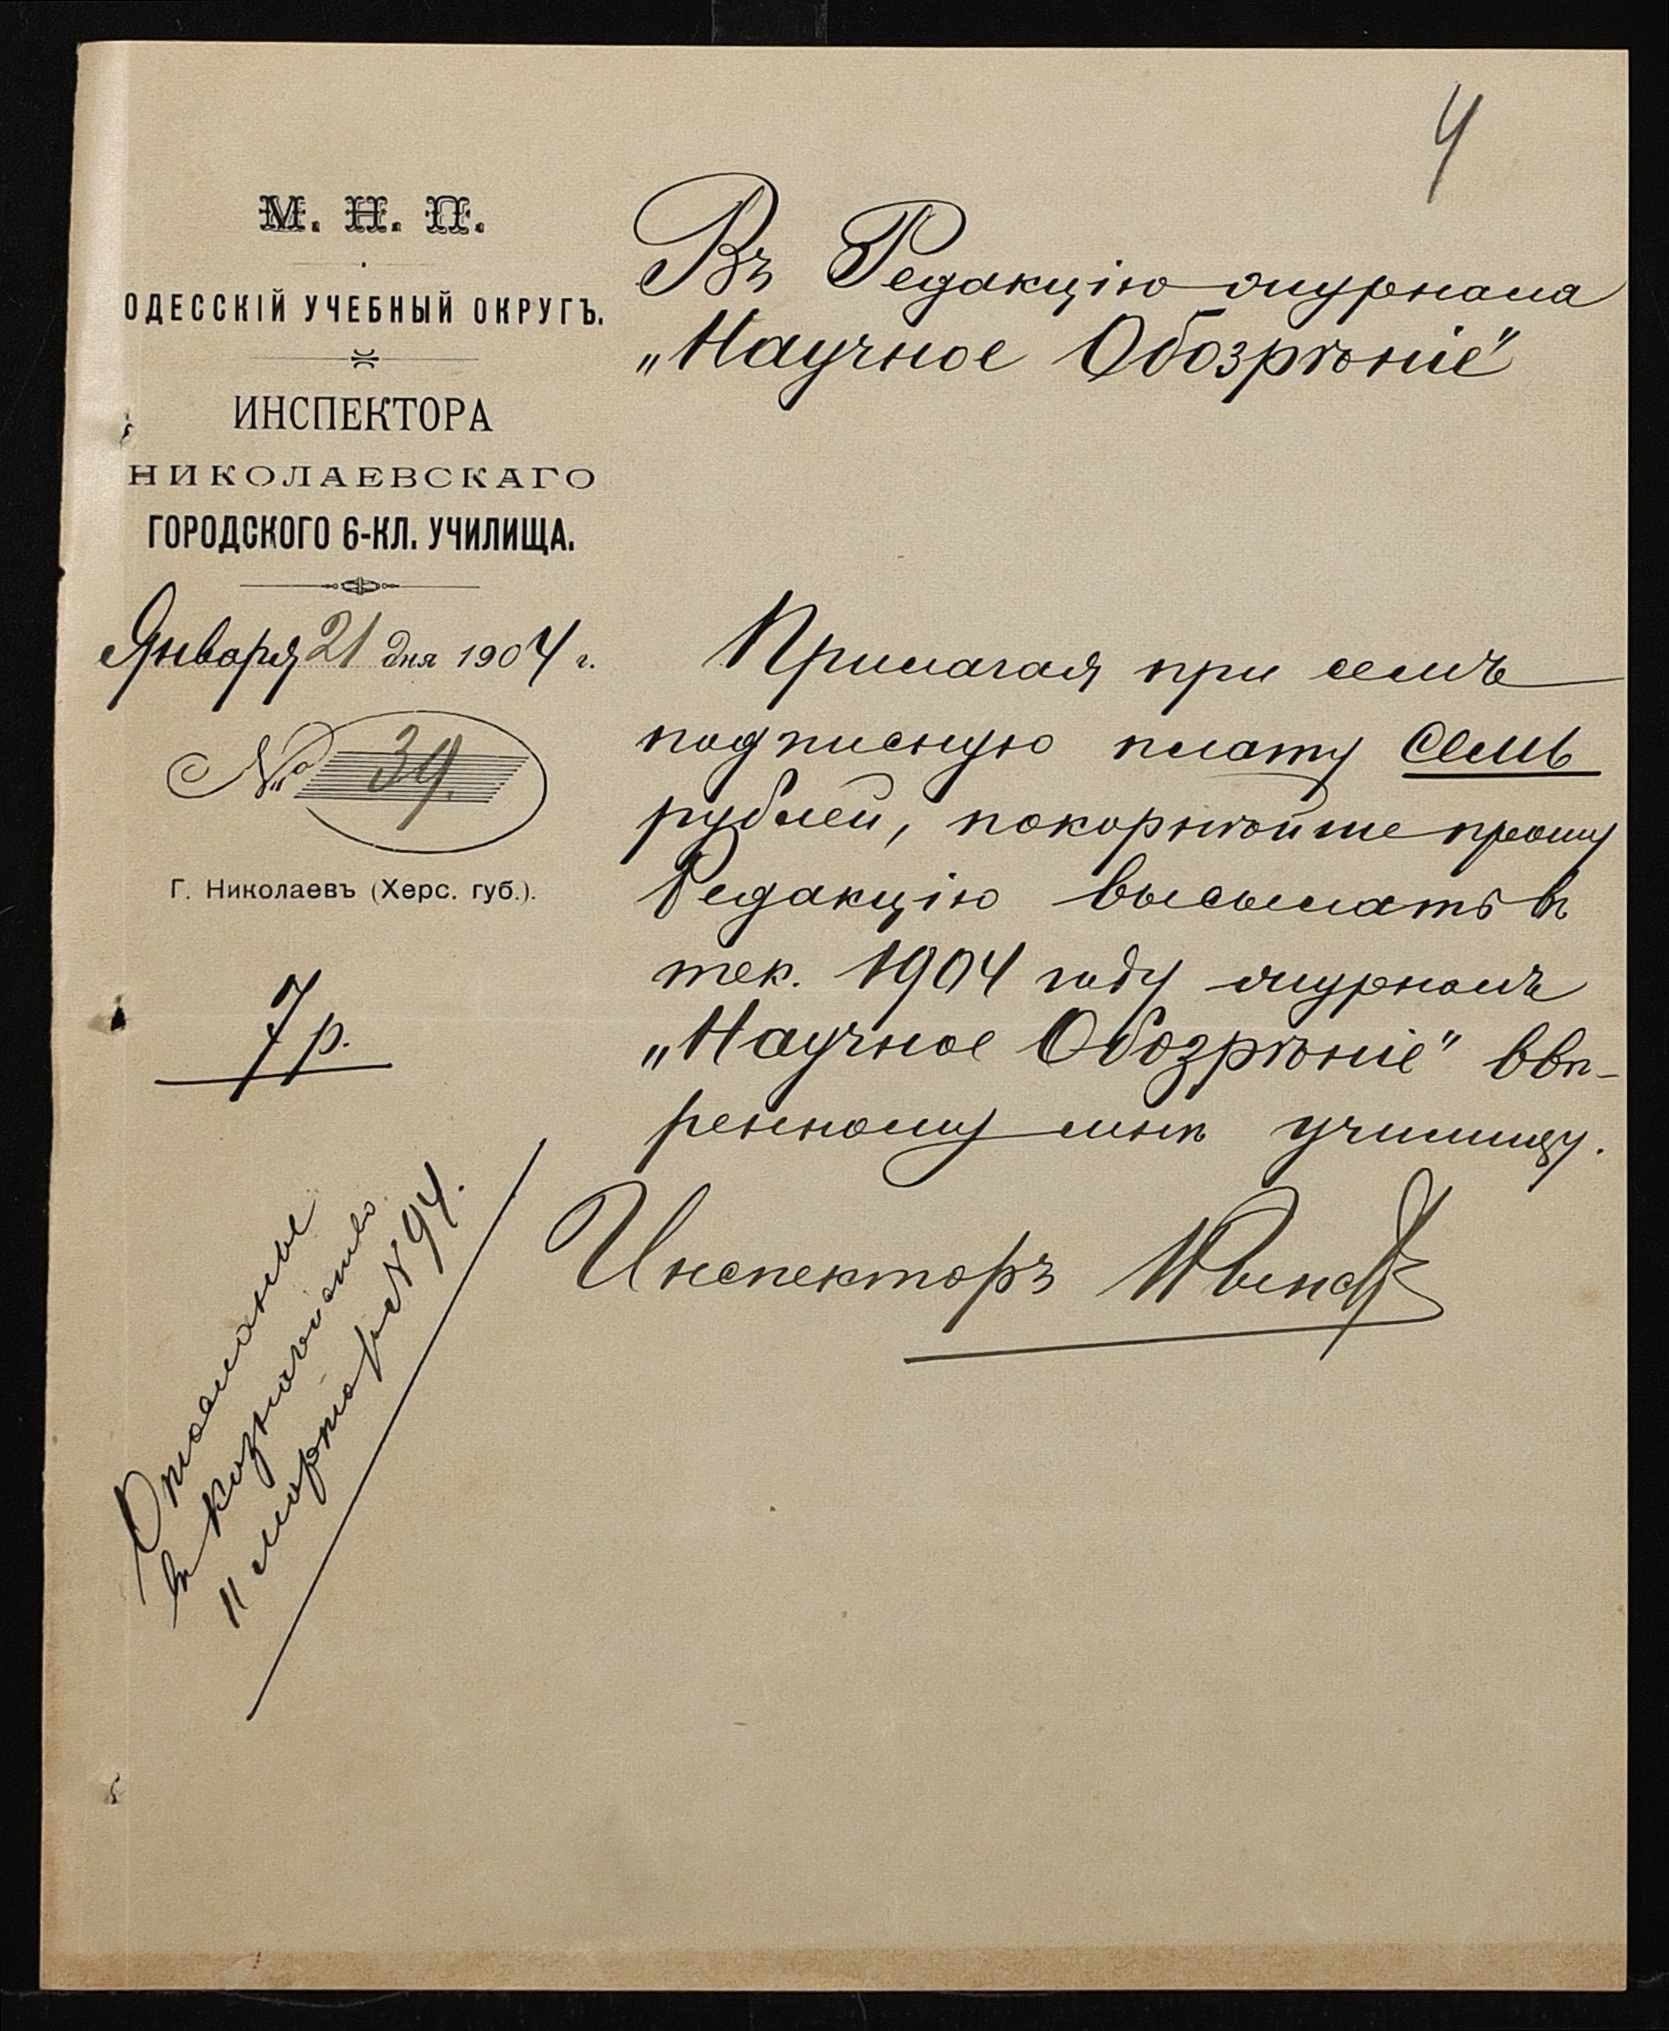 4
М. Н. П.
ОДЕССКІЙ УЧЕБНЫЙ ОКРУГЪ.
ИНСПЕКТОРА
НИКОЛАЕВСКАГО
ГОРОДСКОГО 6-КЛ. УЧИЛИЩА.
Января 21 дня 1904 г.
№ 39.
Г. Николаевъ (Херс. губ.).
7 р.
Отосланы
въ казначейство
11 марта № 94.
Въ Редакцію журнала
„Научное Обозрѣніе"
Прилагая при семъ
подписную плату семь
рублей, покорнѣйше прошу
Редакцію высылать въ
тек. 1904 году журналъ
„Научное Обозрѣніе" ввѣ-
ренному мнѣ училищу.
Инспекторъ